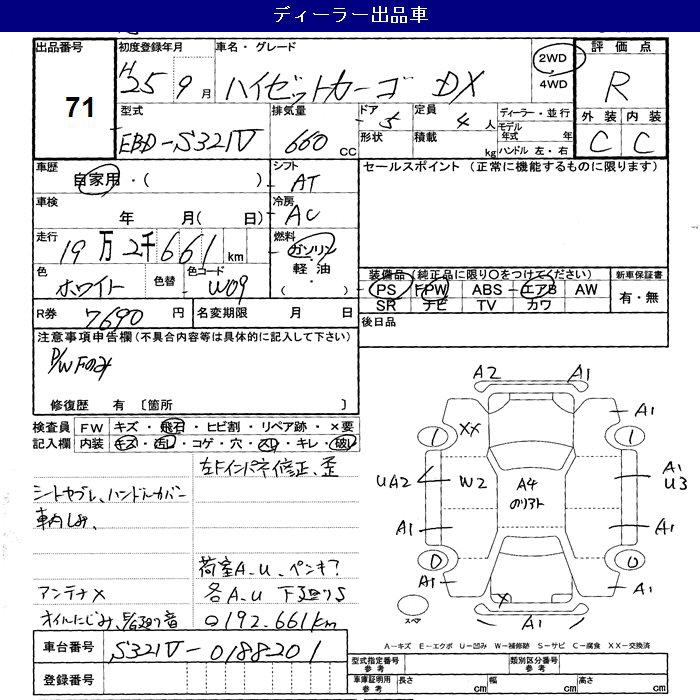 ディーラー出品車
出品番号
71
初度登録年月
H25 9月
車名・グレード
ハイゼットカーゴ DX
2WD
4WD
評価点
R
外装 内装
C C
型式
EBD-S321V
排気量
660 CC
ドア 5
形状
定員 4人
積載 kg
ディーラー・並行
モデル年式 年
ハンドル 左・右
車歴
自家用・( )
シフト
AT
車検
年 月( 日)
冷房
AC
走行
19万2千661km
燃料
ガソリン
軽油
( )
色
ホワイト
色替
色コード
W09
R券 7690円
名変期限 月 日
セールスポイント (正常に機能するものに限ります)
装備品(純正品に限り○をつけてください)
PS PW ABS エアB AW
SR ナビ TV カワ
新車保証書
有・無
後日品
注意事項申告欄(不具合内容等は具体的に記入して下さい)
P/W Fのみ
修復歴 有 〔箇所 〕
検査員 FW キズ・飛石・ヒビ割・リペア跡・×要
記入欄 内装 キズ・汚レ・コゲ・穴・スレ・キレ・破レ
左Fインパネ修正、歪
シートヤブレ、ハンドルカバー
車内しみ、
荷室A.U、ペンキ?
アンテナ×
各A.U 下廻りS
オイルにじみ、
音
192.661km
車台番号 S321V-0188201
登録番号
A2
A1
A1
XX
UA2
W2
A4
のりアト
A1
U3
A1
A1
A1
A1
X
A1
スペア
A-キズ E-エクボ U-凹み W-補修跡 S-サビ C-腐食 XX-交換済
型式指定番号 参考
類別区分番号 参考
車庫証明用 参考
長さ cm 幅 cm 高さ cm